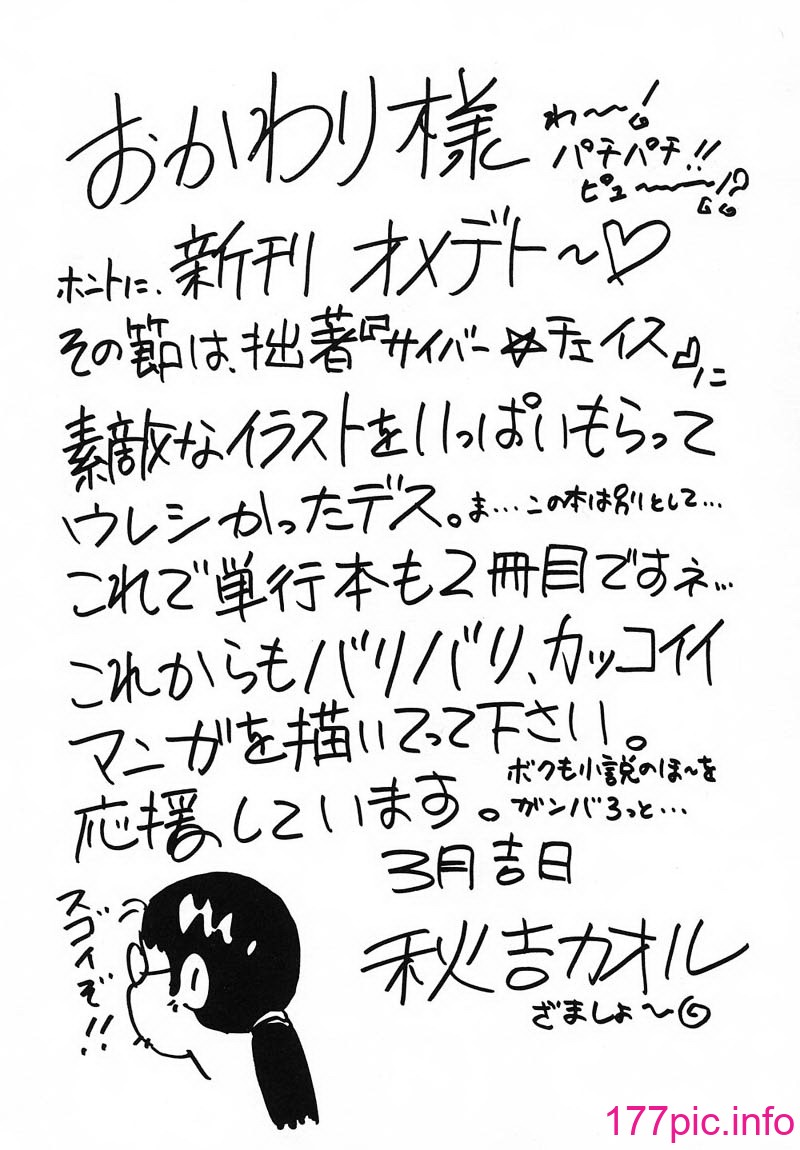 おかわり様
わ〜〜!
パチパチ!!
ピュ〜〜〜!?
ホントに、新刊 オメデト〜♡
その節は、拙著『サイバー☆チェイス』に
素敵なイラストをいっぱいもらって
ウレシかったデス。ま…この本は別りとして…
これで単行本も2冊目ですネ…
これからもバリバリ、カッコイイ
マンガを描いてって下さい。
応援しています。
ボクも小説のほ〜を
ガンバろっと…
3月吉日
秋吉カオル
ざましょ〜
スゴイぞ!!
177pic.info